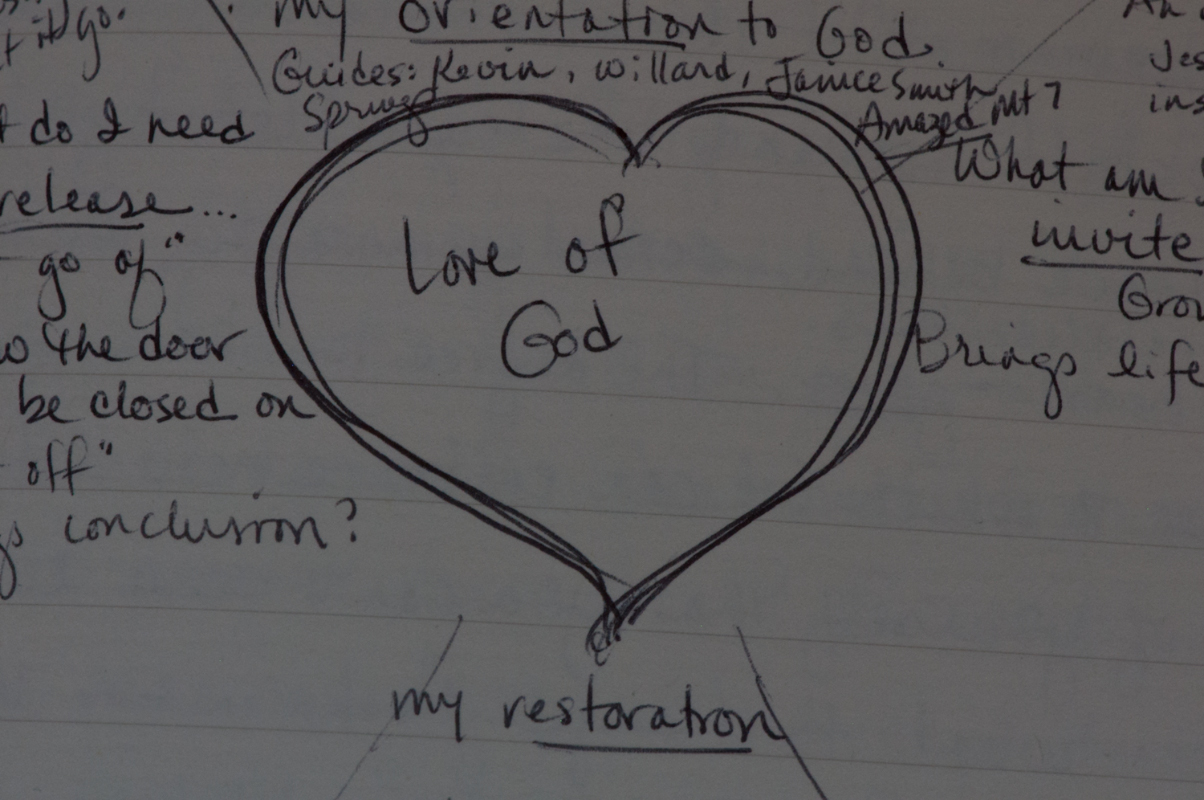 it go.
my Orientation to God.
Guides: Kevin, Willard, Janice Smith
Amazed Mt 7
do I need
release...
go of"
the door
be closed on
off"
conclusion?
Love of
God
What am
invite
Brings life
my restoration